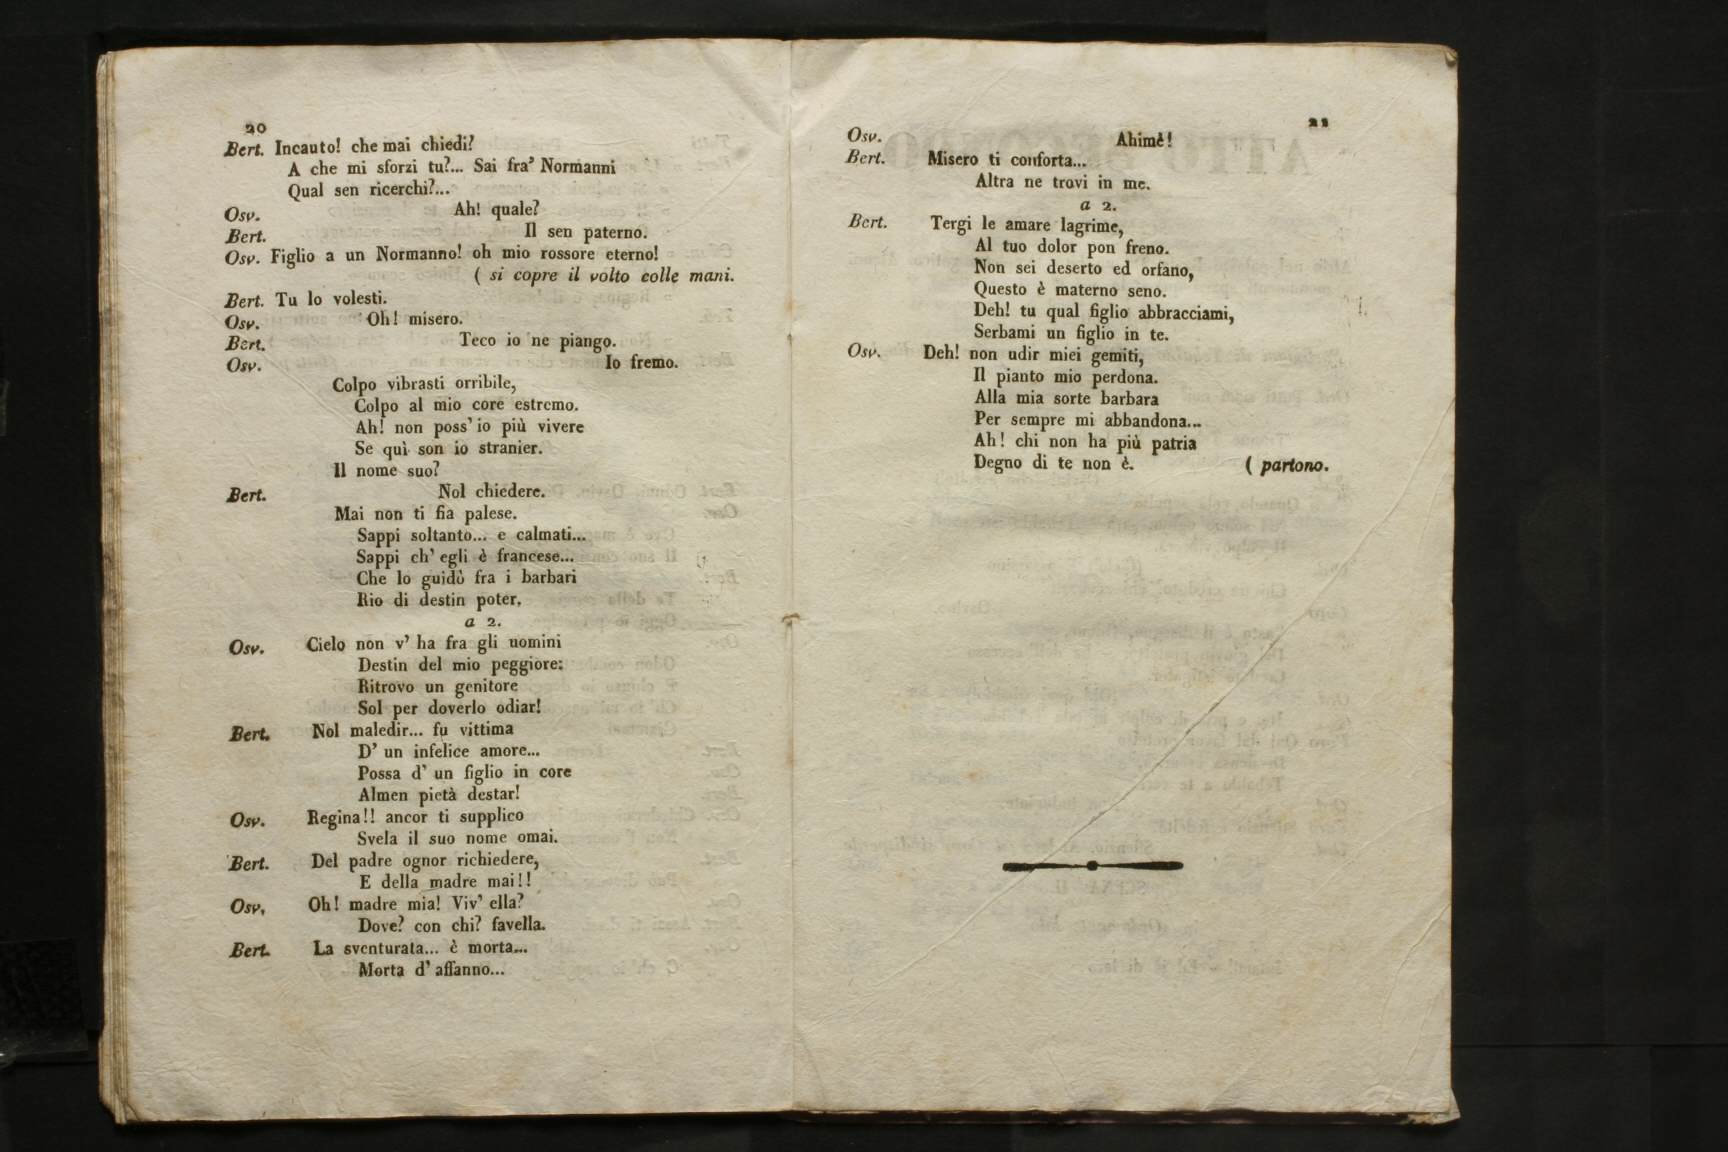 20
Bert. Incauto! che mai chiedi?
A che mi sforzi tu?... Sai fra' Normanni
Qual sen ricerchi?...
Osv. Ah! quale?
Bert. Il sen paterno.
Osv. Figlio a un Normanno! oh mio rossore eterno!
( si copre il volto colle mani.
Bert. Tu lo volesti.
Osv. Oh! misero.
Bert. Teco io ne piango.
Osv. Io fremo.
Colpo vibrasti orribile,
Colpo al mio core estremo.
Ah! non poss' io più vivere
Se quì son io stranier.
Il nome suo?
Bert. Nol chiedere.
Mai non ti fia palese.
Sappi soltanto... e calmati...
Sappi ch' egli è francese...
Che lo guidò fra i barbari
Rio di destin poter.
a 2.
Osv. Cielo non v' ha fra gli uomini
Destin del mio peggiore:
Ritrovo un genitore
Sol per doverlo odiar!
Bert. Nol maledir... fu vittima
D' un infelice amore...
Possa d' un figlio in core
Almen pietà destar!
Osv. Regina!! ancor ti supplico
Svela il suo nome omai.
Bert. Del padre ognor richiedere,
E della madre mai!!
Osv. Oh! madre mia! Viv' ella?
Dove? con chi? favella.
Bert. La sventurata... è morta...
Morta d' affanno...
21
Osv. Ahimè!
Bert. Misero ti conforta...
Altra ne trovi in me.
a 2.
Bert. Tergi le amare lagrime,
Al tuo dolor pon freno.
Non sei deserto ed orfano,
Questo è materno seno.
Deh! tu qual figlio abbracciami,
Serbami un figlio in te.
Osv. Deh! non udir miei gemiti,
Il pianto mio perdona.
Alla mia sorte barbara
Per sempre mi abbandona...
Ah! chi non ha più patria
Degno di te non è. ( partono.